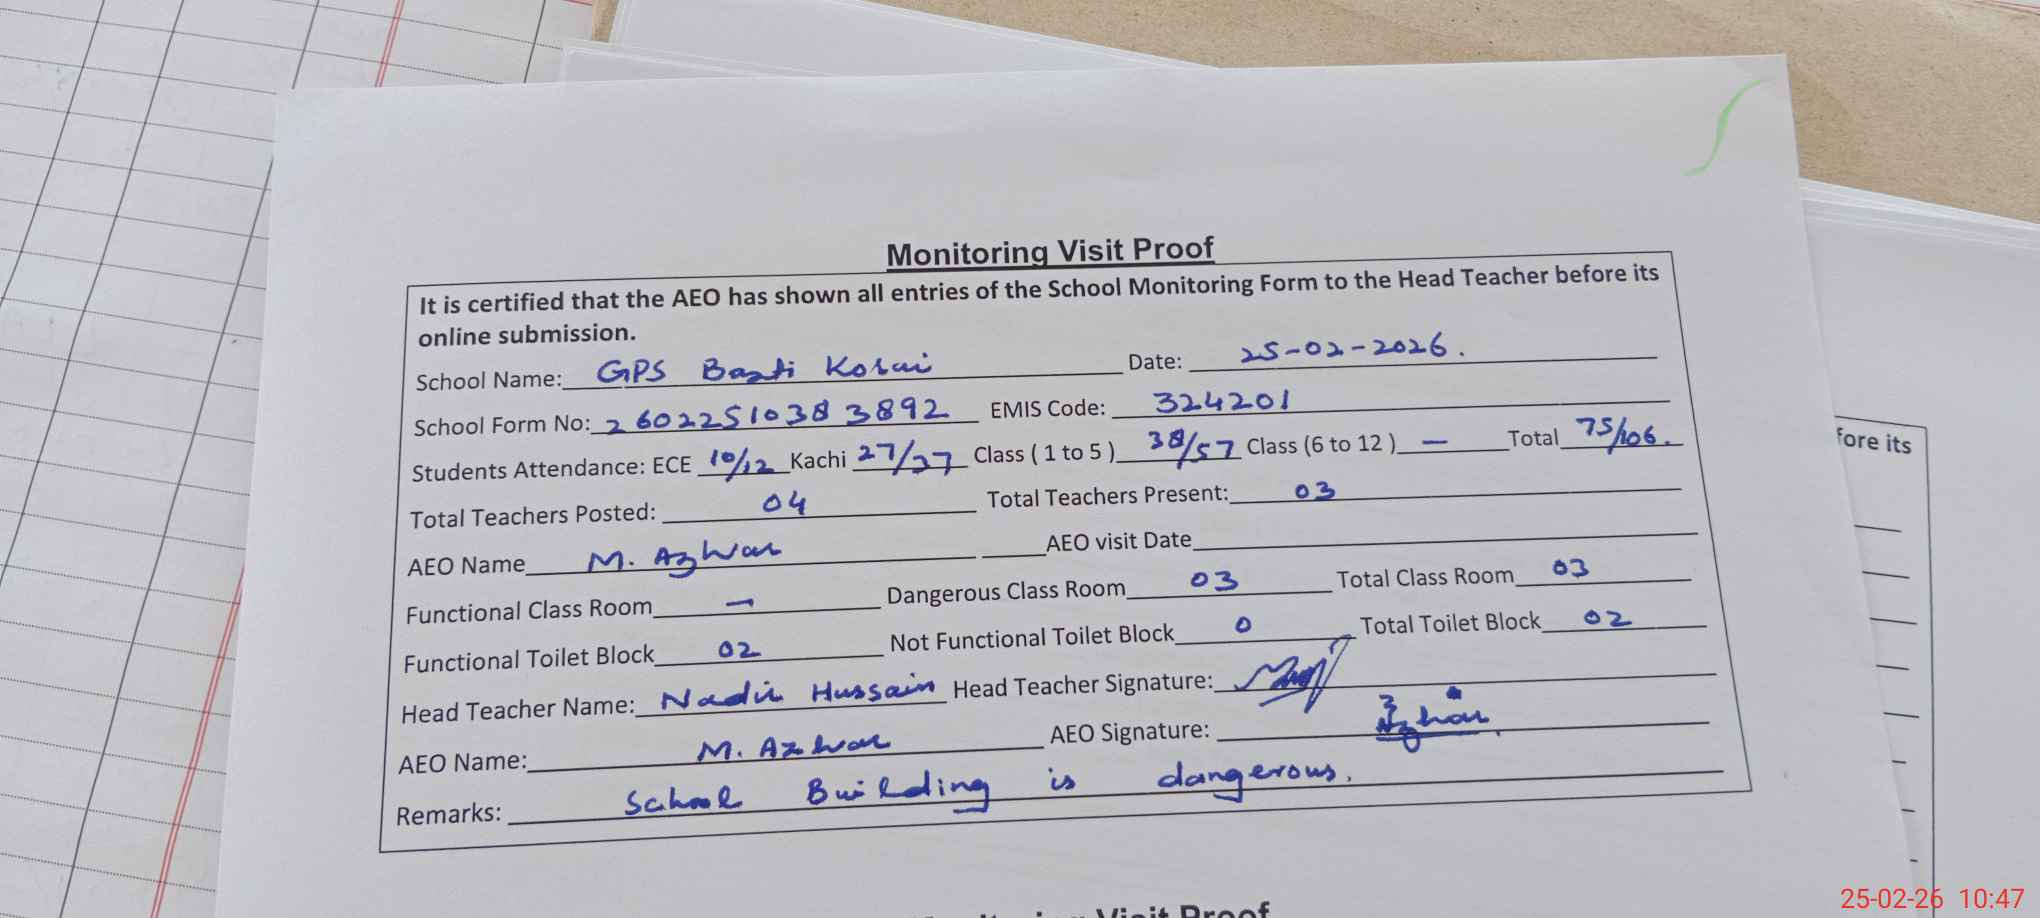 Monitoring Visit Proof
It is certified that the AEO has shown all entries of the School Monitoring Form to the Head Teacher before its
online submission.
School Name: GPS Basti Kosai Date: 25-02-2026.
School Form No: 2602251038 3892 EMIS Code: 324201
Students Attendance: ECE 10/12 Kachi 27/37 Class ( 1 to 5 ) 38/57 Class (6 to 12 ) — Total 75/106.
Total Teachers Posted: 04 Total Teachers Present: 03
AEO Name M. Azhar AEO visit Date
Functional Class Room — Dangerous Class Room 03 Total Class Room 03
Functional Toilet Block 02 Not Functional Toilet Block 0 Total Toilet Block 02
Head Teacher Name: Nadir Hussain Head Teacher Signature:
AEO Name: M. Azhar AEO Signature: Azhar
Remarks: School Building is dangerous.
fore its
Visit Proof
25-02-26 10:47